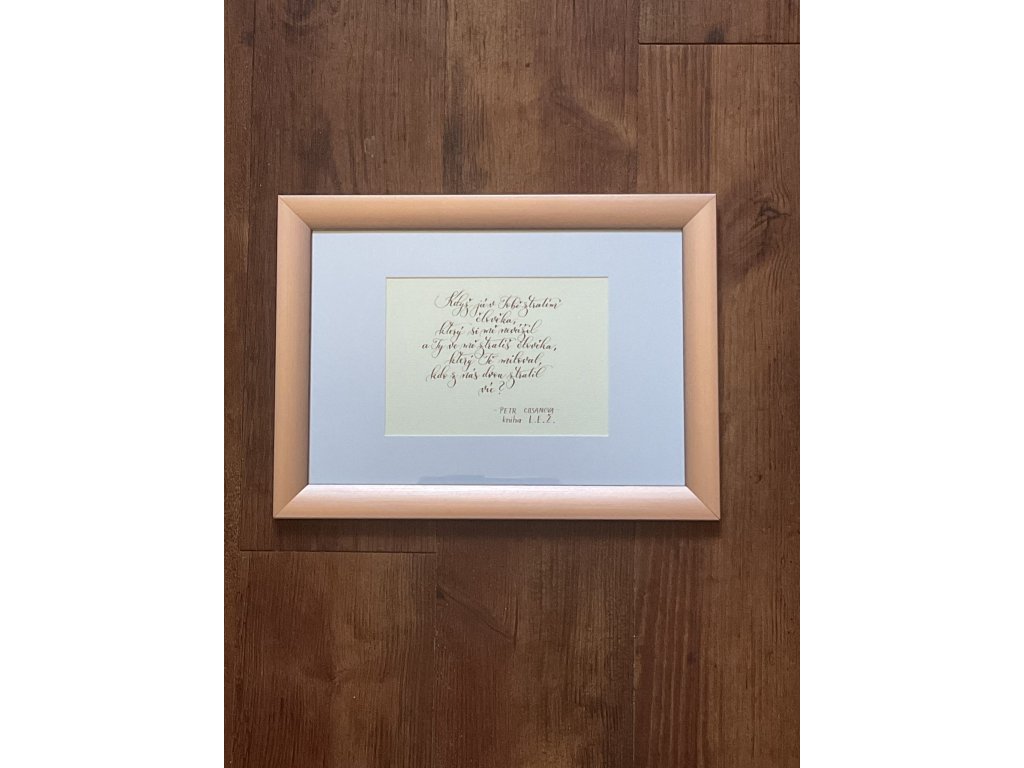 Když já v Tobě ztratím
člověka,
který si mě nevážil
a Ty ve mě ztratíš člověka,
který Tě miloval,
kdo z nás dvou ztratil
víc?
- PETR CASANOVA
kniha L.E.Ž.